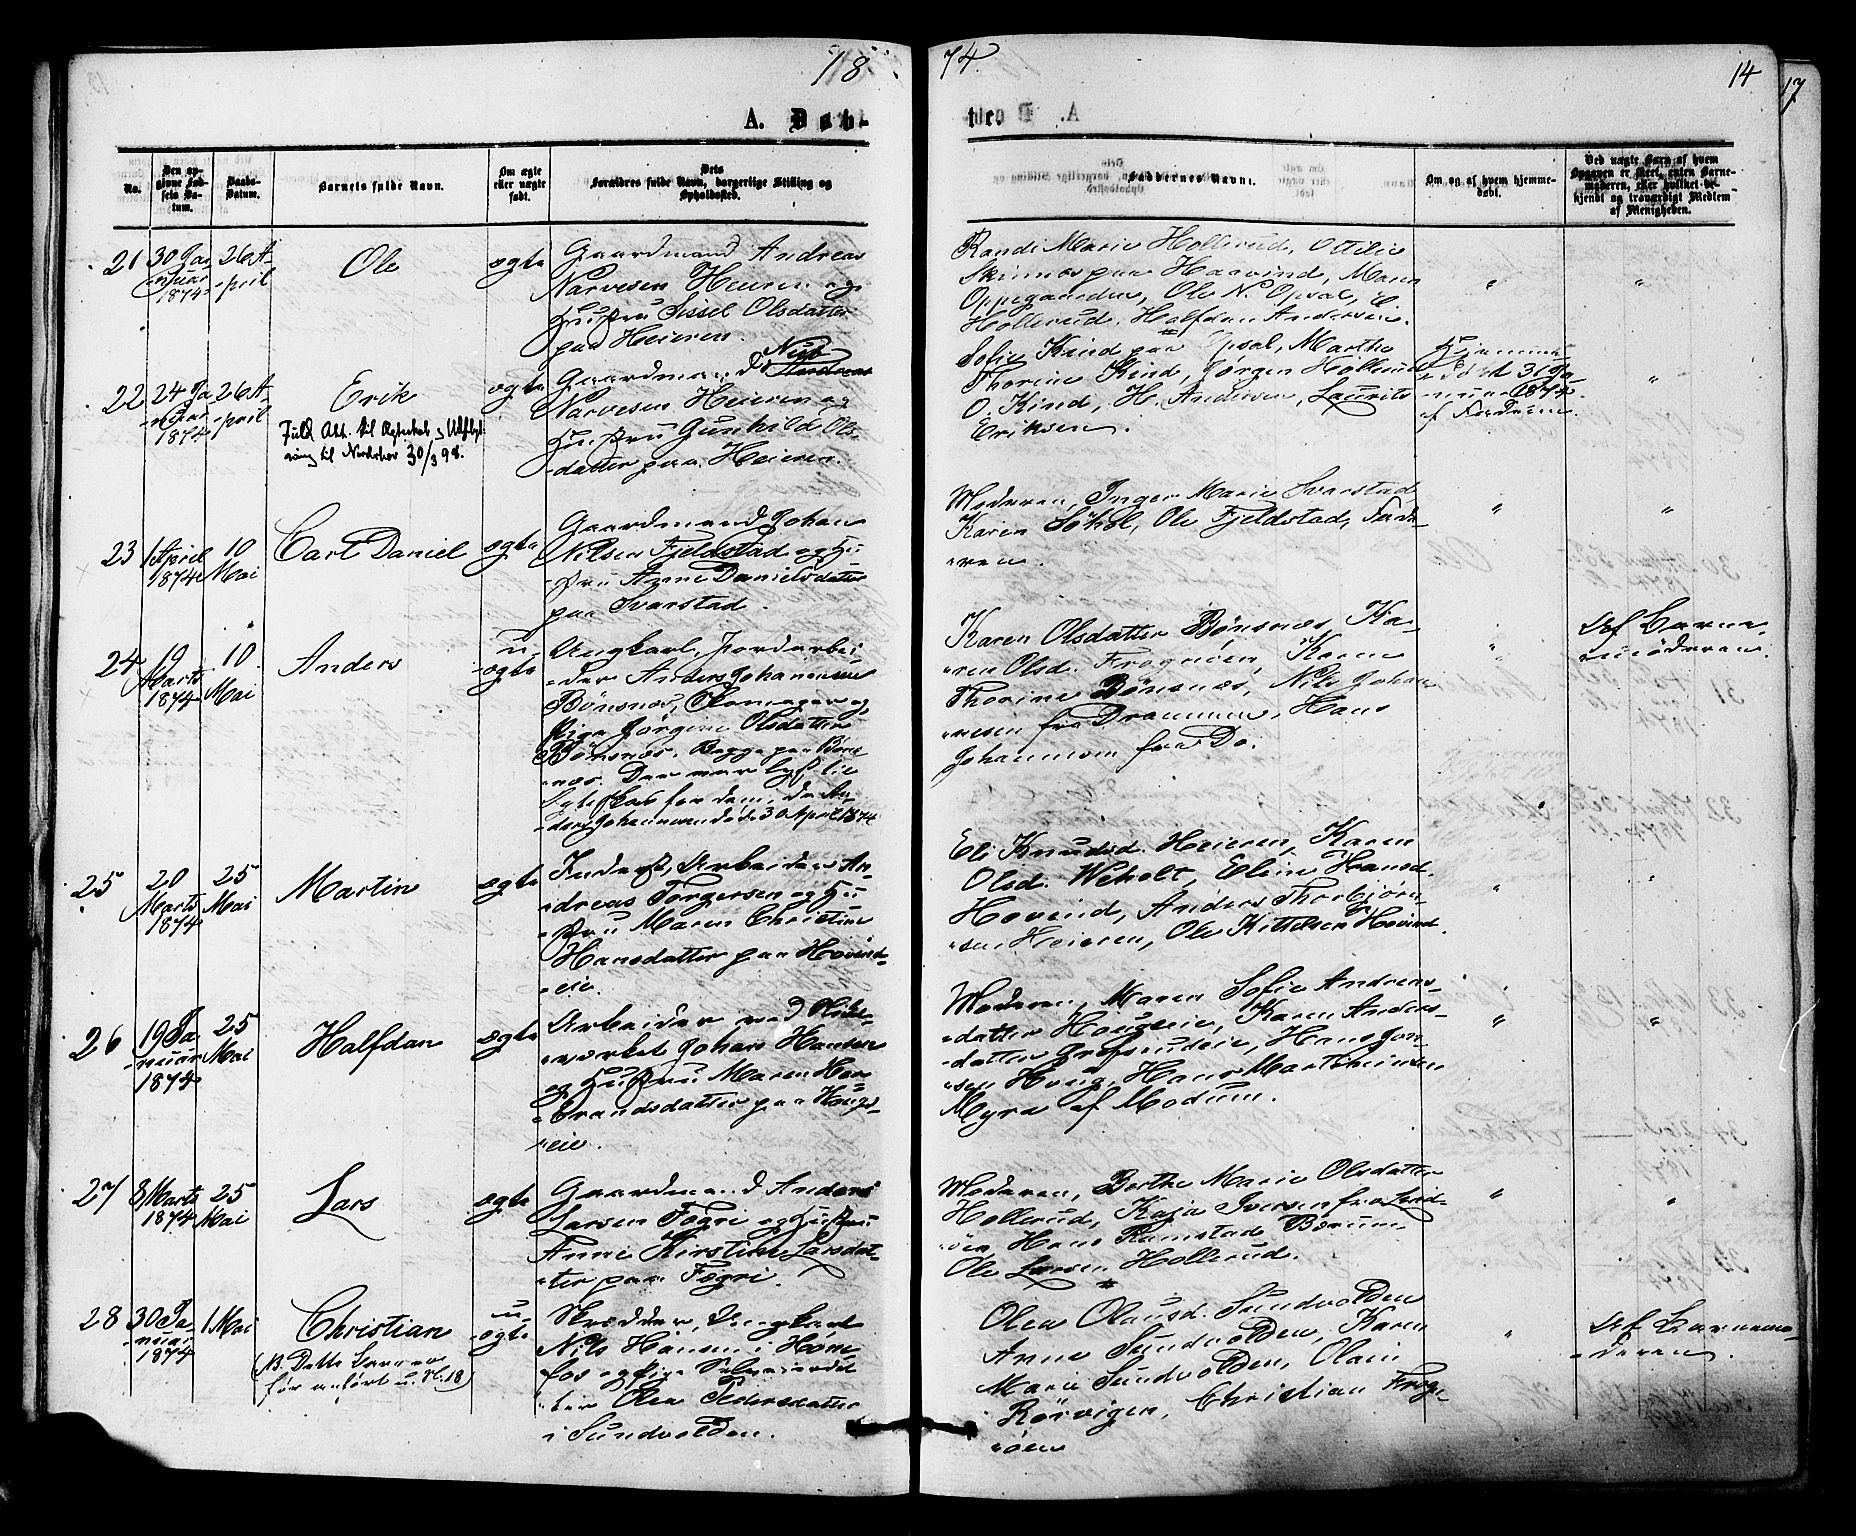 18
74.
14
17
A. Døb-
te.
No.
Den opgivne Fødsels Datum.
Daabs-Datum.
Barnets fulde Navn.
Om ægte eller uægte født.
Dets Forældres fulde Navn, borgerlige Stilling og Opholdssted.
Faddernes Navne.
Om og af hvem hjemmedøbt.
Ved uægte Barn af hvem Opgaven er skeet, enten Barnemoderen, eller hvilket bekjendt og troværdigt Medlem af Menigheden.
21
30 Ja-
-nuar
1874
26 A-
-pril
Ole
ægte
Gaardmand Andreas
Narvesen Heieren og
Hustru Sissel Olsdatter
paa Heieren.
Randi Marie Hollerud, Ottilie
Skinnes paa Haavind,
Oppegaarden, Ole N. Opsal, E.
Hollerud, Halfdan Andersen.
"
"
22
24 Ja-
-nuar
1874
26 A-
-pril
Erik
Fuld Att. til Ægteskab og Udflyt-
ning til Norderhov 30/3 98.
ægte
Gaardmand
Narvesen Heieren og
Hustru Gunhild Ols-
-datter paa Heieren.
Sofie Kind paa Opsal, Marthe
Thorine Kind, Jørgen Hollerud
O. Kind, H. Andersen, Laurits
Eriksen.
Hjemme-
-døbt 31 Ja-
-nuar 1874
af Faderen.
"
23
1 April
1874
10
Mai
Carl Daniel
ægte
Gaardmand Johan
Nilsen Fjeldstad og Hu-
-stru Anne Danielsdatter
paa Svarstad.
Moderen, Inger Marie Svarstad
Karen Søhol, Ole Fjeldstad, Fade-
-ren.
"
"
24
19
Marts
1874
10
Mai
Anders
u-
ægte
Ungkarl, Jordarbei-
-der Anders Johannesen
Bönsnes, Skomager og
Pige Jørgine Olsdatter
Bönsnes. Begge paa Böns-
-nes. Der var lyst til
Ægteskab for dem, da An-
-ders Johannesen døde 30 April 1874
Karen Olsdatter Bönsnes, Ka-
-ren Olsd. Frognøen, Karen
Thorine Bönsnes, Nils Johan-
-nesen fra Drammen, Hans
Johannesen fra Do.
"
Af Barne-
-moderen.
25
20
Marts
1874
25
Mai
Martin
ægte
Inderst, Arbeider An-
-dreas Torgersen og Hu-
-stru Maren Christine
Hansdatter paa Hovind-
-eie.
Eli Knudsd. Heieren, Karen
Olsd. Weholt, Eline Hansd.
Hovind, Anders Thorbjørn-
-sen Heieren, Ole Kittelsen Hovind.
"
"
26
19 Ja-
-nuar
1874
25
Mai
Halfdan
ægte
Arbeider ved Nikel-
-værket Johan Hansen
og Hustru Maren Her-
-brandsdatter paa Houg-
-eie.
Moderen, Maren Sofie Andreas-
-datter Hougseie, Karen Anders-
-datter Grøfsrudeie, Hans Jon-
-sen Houg, Hans Marthinsen
Myra af Modum.
"
"
27
8 Marts
1874
25
Mai
Lars
ægte
Gaardmand Anders
Larsen Fægri og Hustru
Anne Kirstine Larsdat-
-ter paa Fægri.
Moderen, Berthe Marie Olsdatter
Hollerud, Kaja Iversen fra Lind-
-øen, Hans Ramstad Bærum,
Ole Larsen Hollerud.
"
"
28
30 Ja-
-nuar
1874
1 Mai
Christian
(NB. Dette Barn er
før anført u. N. 18)
u-
ægte
Skrædder, Ungkarl
Nils Hansen i Høne-
fos og Pige
Olea Pedersdatter
i Sundvolden.
Olea Olausd. Sundvolden
Anne Sundvolden, Karen
Marie Sundvolden, Olaus
Rörvigen, Christian Frog-
-nøen
"
Af Barnemo-
-deren.